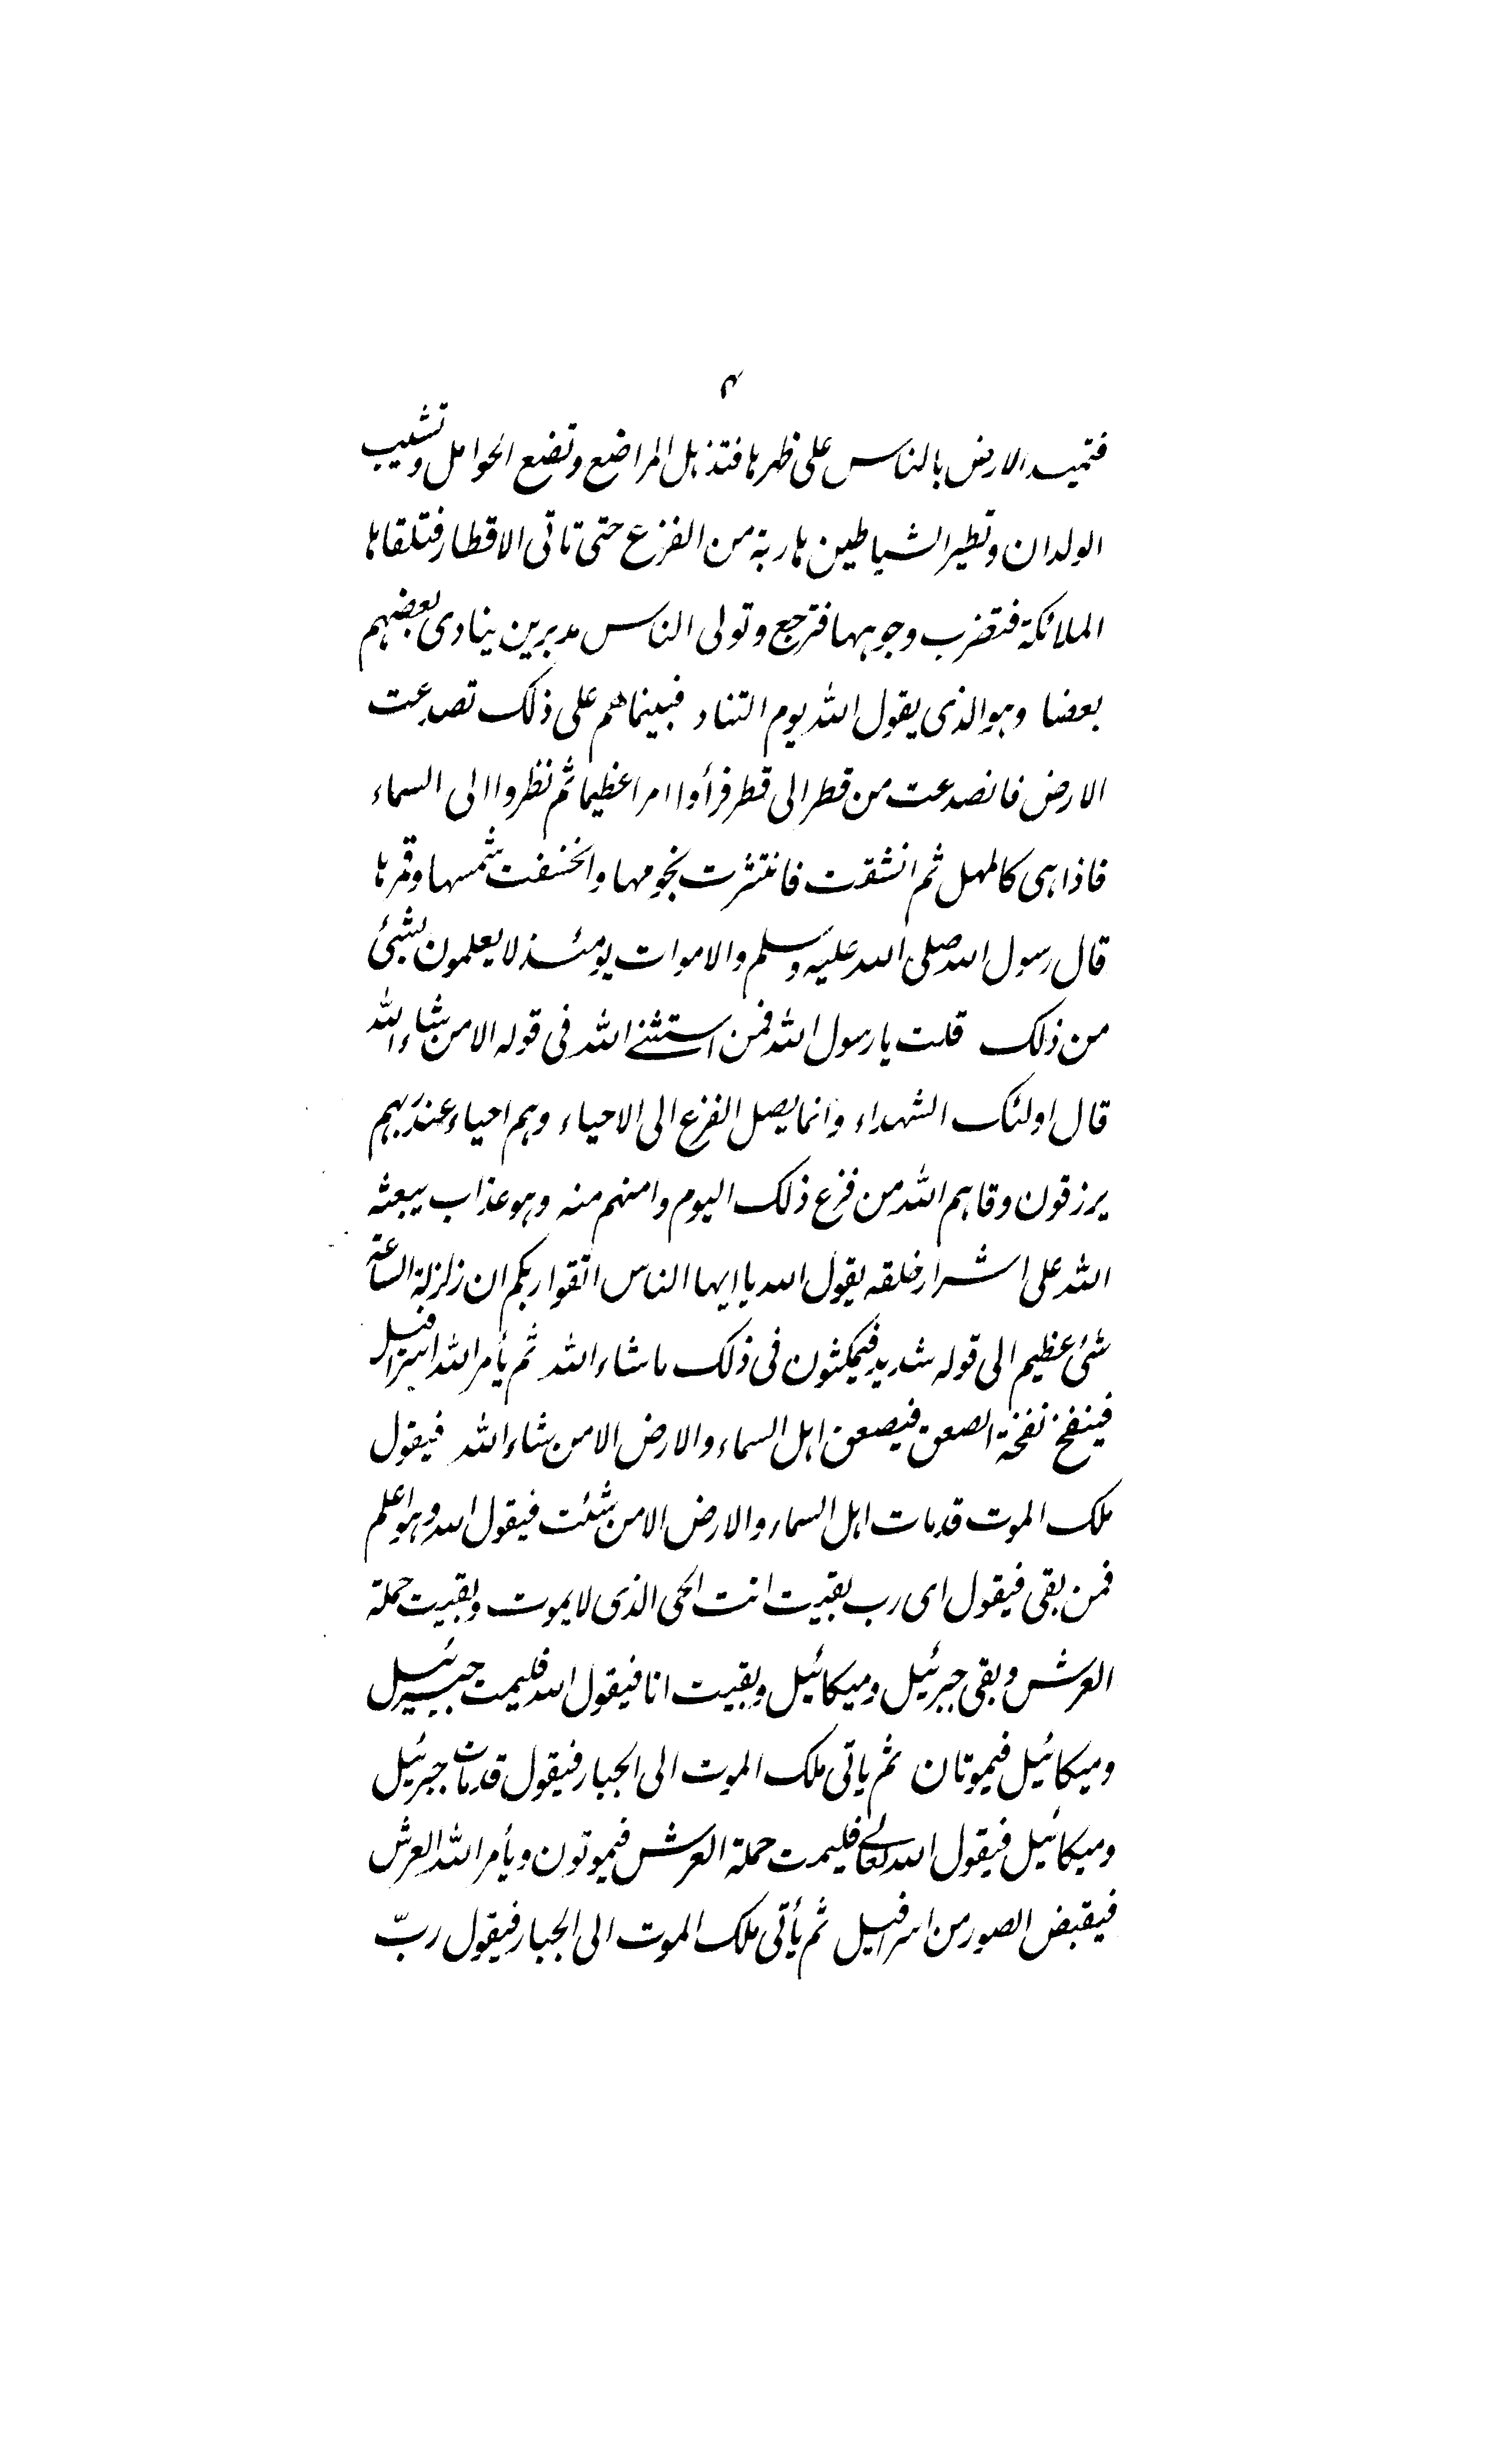 ۴
فتميد الارض بالناس على ظهرها فتذهل المراضع وتضع الحوامل وتشيب
الولدان وتطير الشياطين هاربة من الفزع حتى تاتى الاقطار فتلقاها
الملائكة فتضرب وجوهها فترجع وتولى الناس مدبرين ينادى بعضهم
بعضا وهو الذى يقول الله يوم التناد فبينما هم على ذلك تصدعت
الارض فانصدعت من قطر الى قطر فرأوا امرا عظيما ثم نظروا الى السماء
فاذا هى كالمهل ثم انشقت فانتثرت نجومها وانخسفت شمسها وقمرها
قال رسول الله صلى الله عليه وسلم والاموات يومئذ لا يعلمون بشئ
من ذلك قلت يا رسول الله فمن استثنے الله فى قوله الا من شاء الله
قال اولئك الشهداء وانما يصل الفزع الى الاحياء وهم احياء عند ربهم
يرزقون وقاهم الله من فزع ذلك اليوم وامنهم منه وهو عذاب يبعثه
الله على اشرار خلقه يقول الله يا ايها الناس اتقوا ربكم ان زلزلة الساعة
شئ عظيم الى قوله شديد فيمكثون فى ذلك ما شاء الله ثم يأمر الله اسرافيل
فينفخ نفخة الصعق فيصعق اهل السماء والارض الا من شاء الله فيقول
ملك الموت قد مات اهل السماء والارض الا من شئت فيقول الله وهو اعلم
فمن بقى فيقول اى رب بقيت انت الحى الذى لا يموت وبقيت حملة
العرش وبقى جبرئيل وميكائيل وبقيت انا فيقول الله فليمت جبرئيل
وميكائيل فيموتان ثم ياتى ملك الموت الى الجبار فيقول قد مات جبرئيل
وميكائيل فيقول الله تعالے فليمت حملة العرش فيموتون ويأمر الله العرش
فيقبض الصور من اسرافيل ثم يأتى ملك الموت الى الجبار فيقول ربّ